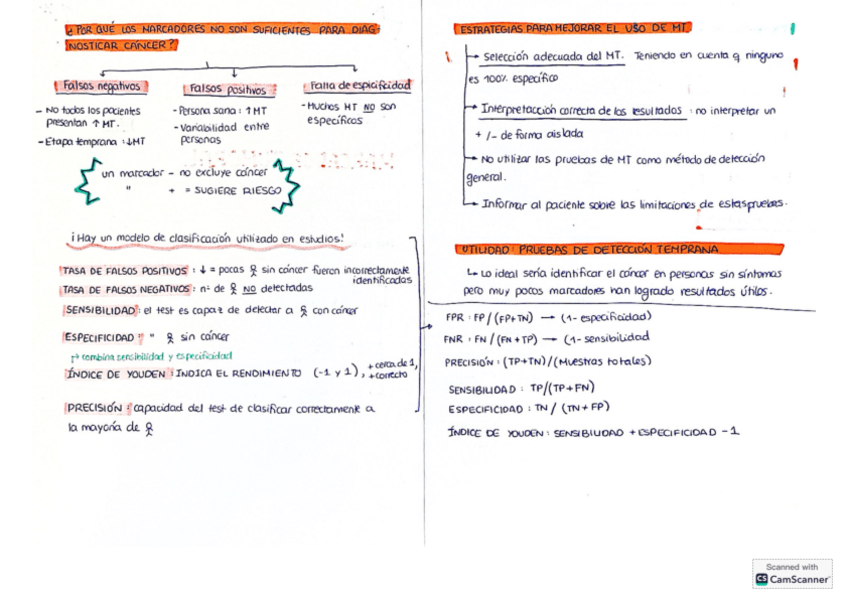 ¿POR QUÉ LOS MARCADORES NO SON SUFICIENTES PARA DIAG-
NOSTICAR CÁNCER?
Falsos negativos
- No todos los pacientes
presentan ↑ MT.
- Etapa temprana : ↓MT
Falsos positivos :
- Persona sana : ↑ MT
- Variabilidad entre
personas
Falta de espicificidad
- Muchos MT NO son
específicos
un marcador - no excluye cáncer
" + = SUGIERE RIESGO
¡Hay un modelo de clasificación utilizado en estudios!
TASA DE FALSOS POSITIVOS : ↓ = pocas sin cáncer fueron incorrectamente
identificadas
TASA DE FALSOS NEGATIVOS : nº de NO detectadas
SENSIBILIDAD : el test es capaz de detectar a con cáncer
ESPECIFICIDAD : " sin cáncer
↱ combina sensibilidad y especificidad
ÍNDICE DE YOUDEN : INDICA EL RENDIMIENTO (-1 y 1), + cerca de 1,
+ correcto
PRECISIÓN : capacidad del test de clasificar correctamente a
la mayoría de
ESTRATEGIAS PARA MEJORAR EL USO DE MT.
→ Selección adecuada del MT. Teniendo en cuenta q ninguno
es 100% específico
→ Interpretacción correcta de los resultados : no interpretar un
+ /- de forma aislada
→ No utilizar las pruebas de MT como método de detección
general.
→ Informar al paciente sobre las limitaciones de estas pruebas.
UTILIDAD : PRUEBAS DE DETECCIÓN TEMPRANA
↳ Lo ideal sería identificar el cáncer en personas sin síntomas
pero muy pocos marcadores han logrado resultados útilos.
FPR : FP / (FP+TN) → (1- especificidad)
FNR : FN / (FN + TP) → (1- sensibilidad
PRECISIÓN : (TP+TN)/(Muestras totales)
SENSIBILIDAD : TP/(TP+FN)
ESPECIFICIDAD : TN / (TN + FP)
ÍNDICE DE YOUDEN : SENSIBILIDAD + ESPECIFICIDAD - 1
Scanned with
CS CamScanner